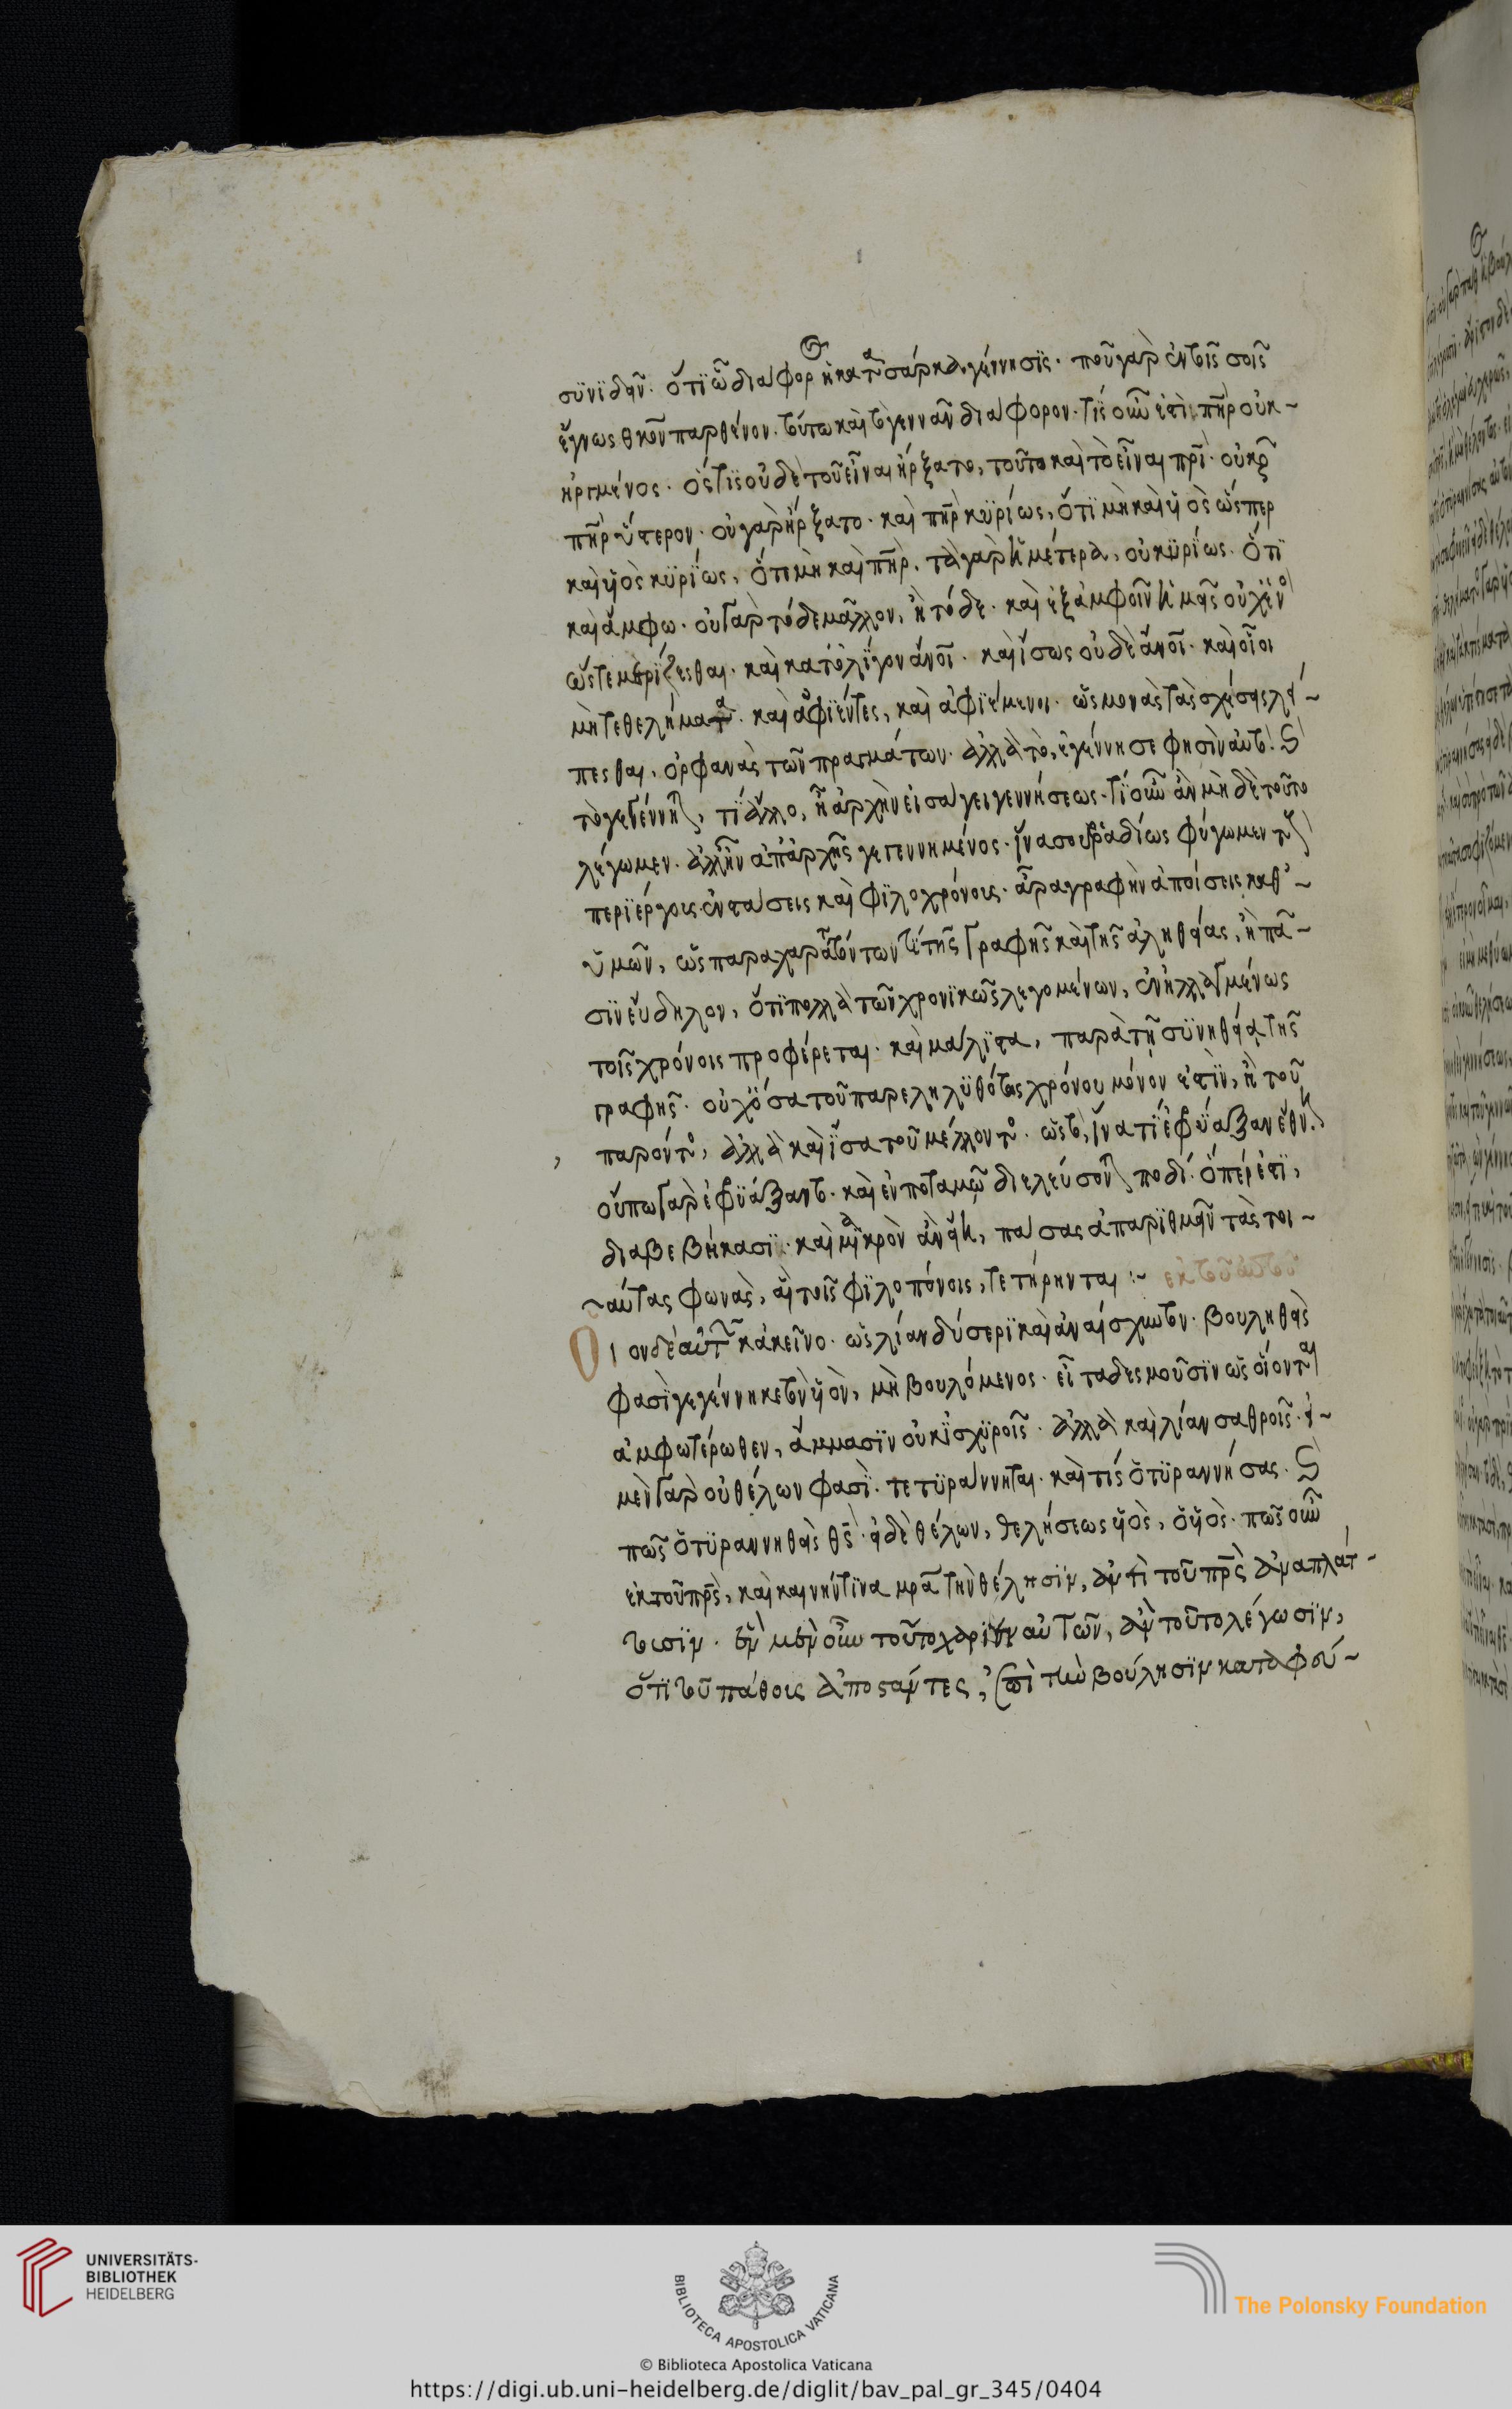 συνϊδεῖν. ὅτϊ ὧ διάφορ ἡ κατὰ σάρκα γέννησϊς. ποῦ γὰρ ἐν τοῖς σοῖς
ἔγνως θκον παρθένον. τούτω καὶ τὸ γεννᾶν διάφορον. τίς οὖν ἐστὶ πηρ οὐκ ~
ἠργμένος. ὅστϊς οὐδὲ τοῦ εἶναι ἤρξατο, τοῦτο καὶ τὸ εἶναι πρϊ. οὐκ
πηρ ὕστερον. οὐ γὰρ ἤρξατο. καὶ πηρ κυρίως, ὅτϊ μὴ καὶ υἱὸς ὥσπερ
καὶ υἱὸς κυρίως, ὅτι μὴ καὶ πηρ. τὰ γὰρ ἡμέτερα, οὐ κυρίως. ὅτϊ
καὶ ἄμφω. οὐ γὰρ τόδε μᾶλλον, ἢ τόδε. καὶ ἐξ ἀμφοῖν ἡμεῖς οὐχ ἑνὸ
ὥστε μερίζεσθαι. καὶ κατ' ὀλίγον ἄνοι. καὶ ἴσως οὐδὲ ἄνοι. καὶ οἷοι
μὴ τεθελήματα. καὶ ἀφϊέντες, καὶ ἀφϊέμενοι. ὡς μονὰς τὰς σχέσεις λεί ~
πεσθαι, ὀρφανὰς τῶν πραγμάτων. ἀλλὰ τὸ, ἐγέννησε φησὶν αὐτὸ. S
τὸ γεγέννητ, τί ἄλλο, ἢ ἀρχὴν εἰσάγει γεννήσεως. τί οὖν ἂν μὴ δὲ τοῦτο
λέγωμεν. ἀλλ' ἦν ἀπ' ἀρχῆς γεγεννημένος. ἵνα σου ῥαδίως φύγωμεν τὰς
περϊέργους ἐνστάσεις καὶ φϊλοχρόνους. ἆρα γραφὴν ἀποίσεις καθ' ~
ὑμῶν, ὡς παραχαραττόντων τι τῆς γραφῆς καὶ τῆς ἀληθείας, ἢ πᾶ ~
σϊν εὔδηλον, ὅτϊ πολλὰ τῶν χρονϊκῶς λεγομένων, ἐνηλλαγμένως
τοῖς χρόνοις προφέρεται. καὶ μάλϊστα, παρὰ τῇ συνηθείᾳ τῆς
γραφῆς. οὐχ ὅσα τοῦ παρεληλυθότος χρόνου μόνον ἐστὶν, ἢ τοῦ
παρόντ, ἀλλὰ καὶ ὅσα τοῦ μέλλοντ. ὡς τὸ, ἵνα τί ἐφρύαξαν ἔθνη.
οὔπω γὰρ ἐφρύαξαν τὸ. καὶ ἐν ποταμῷ διελεύσοντ ποδί. ὅπέρ ἐστϊ,
διαβεβήκασϊ. καὶ μακρὸν ἂν εἴη, πάσας ἀπαρϊθμεῖν τὰς τοι ~
~ αύτας φωνὰς, αἳ τοῖς φϊλοπόνοις, τετήρηνται :~ ἐκ τοῦ αὐτοῦ
Οἷον δὲ αὐτῶν κἀκεῖνο. ὡς λίαν δύσερϊ καὶ ἀναίσχυντον. βουληθεὶς
φασὶ γεγέννηκε τὸν υἱὸν, μὴ βουλόμενος. εἶτα δεσμοῦσϊν ὡς οἴονται
ἀμφωτέρωθεν, ἅμμασϊν οὐκ ἰσχυροῖς. ἀλλὰ καὶ λίαν σαθροῖς. εἰ ~
μὲν γὰρ οὐ θέλων φασὶ. τετυράννηται. καὶ τίς ὁ τυραννήσας. S
πῶς ὁ τυραννηθεὶς θς. εἰ δὲ θέλων, θελήσεως υἱὸς, ὁ υἱὸς. πῶς οὖν
ἐκ τοῦ πρς, καὶ καινήν τϊνα μρα τὴν θέλησϊν, ἀντὶ τοῦ πρς ἀναπλάτ ~
τουσϊν. ἓν μὲν οὖν τοῦτο χάρϊεν αὐτῶν, ἂν τοῦτο λέγωσϊν,
ὅτϊ τοῦ πάθους ἀποστάντες, ἐπὶ τὴν βούλησϊν καταφεύ ~
UNIVERSITÄTS-
BIBLIOTHEK
HEIDELBERG
BIBLIOTECA APOSTOLICA VATICANA
The Polonsky Foundation
© Biblioteca Apostolica Vaticana
https://digi.ub.uni-heidelberg.de/diglit/bav_pal_gr_345/0404